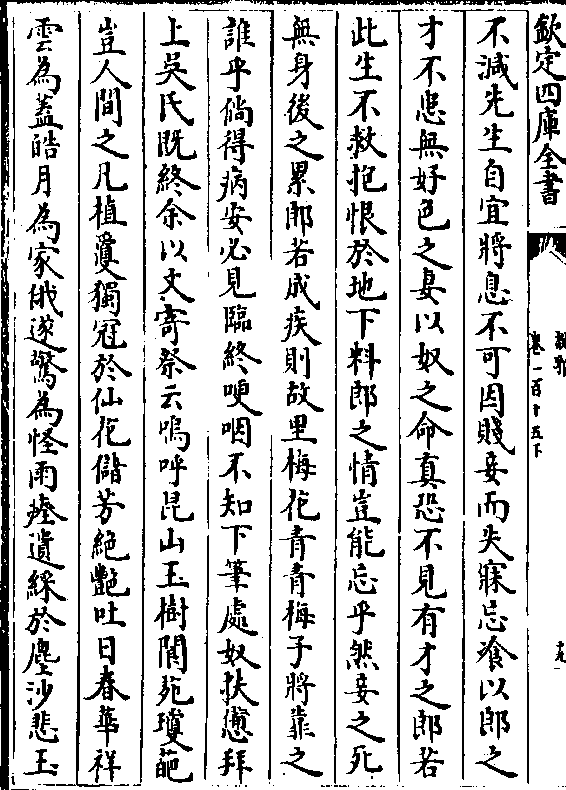 欽定四庫全書
卷一百十五下
不減先生自宜將息不可因賤妾而失寐忘飡以郎之
才不患無好色之妻以奴之命真恐不見有才之郎若
此生不救抱恨於地下料郎之情豈能忘乎然妾之死
無身後之累郎若成疾則故里梅花青青梅子將靠之
誰乎倘得病安必見臨終哽咽不知下筆處奴扶憊拜
上吳氏既終余以文寄祭云嗚呼昆山玉樹閬苑瓊葩
豈人間之凡植敻獨冠於仙花儲芳絶艶吐日春華祥
雲為蓋皓月為家俄遂驚為怪雨瘗遺綵於塵沙悲玉